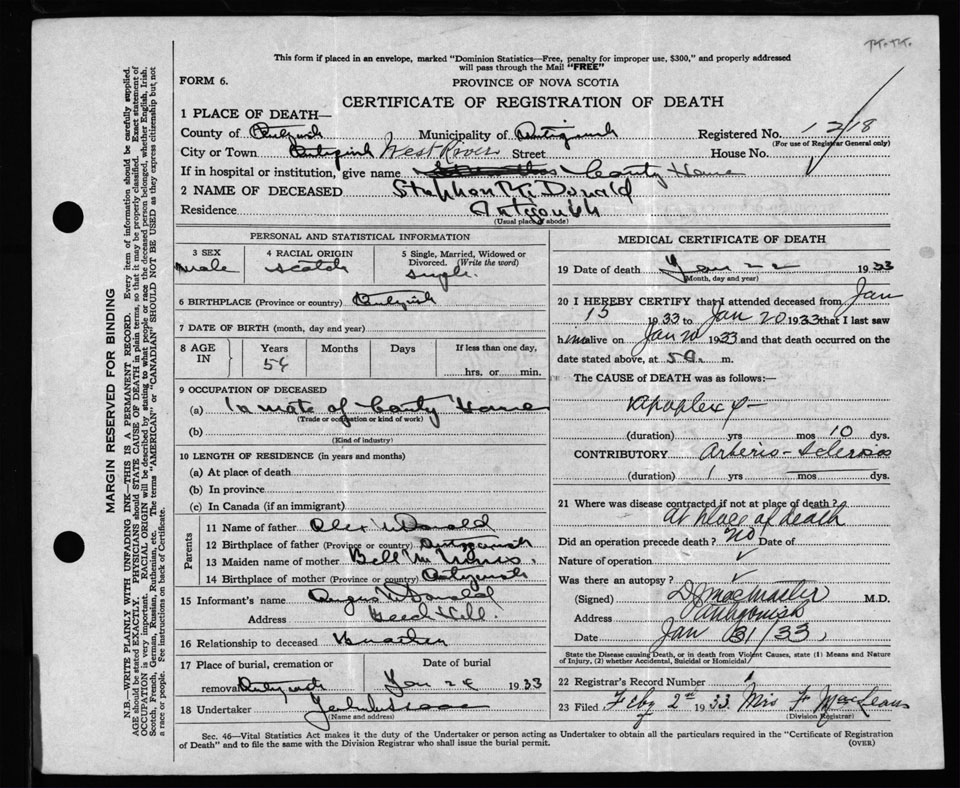 This form if placed in an envelope, marked "Dominion Statistics—Free, penalty for improper use, $300," and properly addressed
will pass through the Mail "FREE"
FORM 6.
PROVINCE OF NOVA SCOTIA
CERTIFICATE OF REGISTRATION OF DEATH
1 PLACE OF DEATH—
County of Antigonish Municipality of Antigonish Registered No. 1218
(For use of Registrar General only)
City or Town Antigonish West River Street House No.
If in hospital or institution, give name County Home
2 NAME OF DECEASED Stephen McDonald
Residence Antigonish
(Usual place of abode)
MARGIN RESERVED FOR BINDING
N.B.—WRITE PLAINLY WITH UNFADING INK—THIS IS A PERMANENT RECORD. Every item of information should be carefully supplied.
AGE should be stated EXACTLY. PHYSICIANS should STATE CAUSE OF DEATH in plain terms, so that it may be properly classified. Exact statement of
OCCUPATION is very important. RACIAL ORIGIN will be described by stating to what people or race the deceased person belonged, whether English, Irish,
Scotch, French, German, Russian, Ruthenian, etc. The terms "AMERICAN" or "CANADIAN" SHOULD NOT BE USED as they express citizenship but not
a race or people. See instructions on back of Certificate.
PERSONAL AND STATISTICAL INFORMATION
3 SEX
male
4 RACIAL ORIGIN
Scotch
5 Single, Married, Widowed or
Divorced. (Write the word)
single
6 BIRTHPLACE (Province or country) Antigonish
7 DATE OF BIRTH (month, day and year)
8 AGE
IN
Years Months Days If less than one day,
hrs. or min.
9 OCCUPATION OF DECEASED
(a) Inmate of County Home
(Trade or occupation or kind of work)
(b)
(Kind of industry)
10 LENGTH OF RESIDENCE (in years and months)
(a) At place of death
(b) In province
(c) In Canada (if an immigrant)
Parents
11 Name of father Alex McDonald
12 Birthplace of father (Province or country) Antigonish
13 Maiden name of mother Bell
14 Birthplace of mother (Province or country) Antigonish
15 Informant's name Angus McDonald
Address
16 Relationship to deceased
17 Place of burial, cremation or Date of burial
removal Antigonish Jan 1933
18 Undertaker
(Name and address)
MEDICAL CERTIFICATE OF DEATH
19 Date of death Jan 22 1933
(Month, day and year)
20 I HEREBY CERTIFY that I attended deceased from Jan
15 1933 to Jan 20 1933 that I last saw
him alive on Jan 20 1933 and that death occurred on the
date stated above, at 5 a. m.
The CAUSE of DEATH was as follows:—
Apoplexy
(duration) yrs mos 10 dys.
CONTRIBUTORY Arterio-Sclerosis
(duration) 1 yrs mos dys.
21 Where was disease contracted if not at place of death?
At place of death
Did an operation precede death? No Date of
Nature of operation
Was there an autopsy?
(Signed) D. J. MacMaster M.D.
Address Antigonish
Date Jan 31/33
State the Disease causing Death, or in death from Violent Causes, state (1) Means and Nature
of Injury, (2) whether Accidental, Suicidal or Homicidal
22 Registrar's Record Number
23 Filed Feby 2nd 1933. Mrs F MacLean
(Division Registrar)
Sec. 46—Vital Statistics Act makes it the duty of the Undertaker or person acting as Undertaker to obtain all the particulars required in the "Certificate of Registration
of Death" and to file the same with the Division Registrar who shall issue the burial permit.
(OVER)